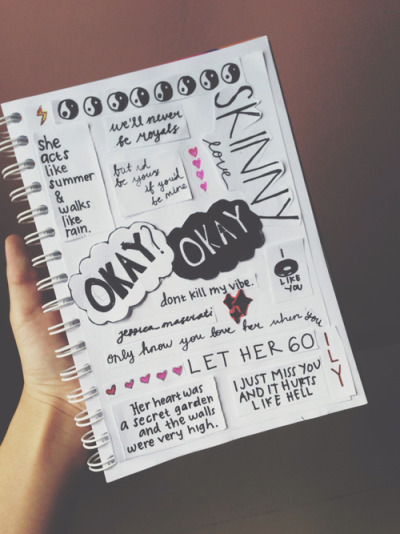 we'll never
be royals
SKINNY
love
she
acts
like
summer
&
walks
like
rain.
but i'd
be yours
if you'd
be mine
OKAY?
OKAY
I
LIKE
YOU
dont kill my vibe.
jessica maserati
only know you love her when you
LET HER GO
ILY
Her heart was
a secret garden
and the walls
were very high.
I JUST MISS YOU
AND IT HURTS
LIKE HELL